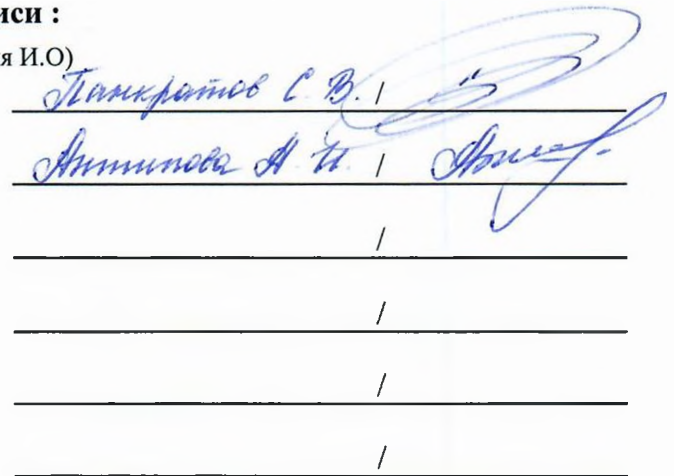 иси :
я И.О)
Панкратов С. В. /
Антипова А. И. /
/
/
/
/